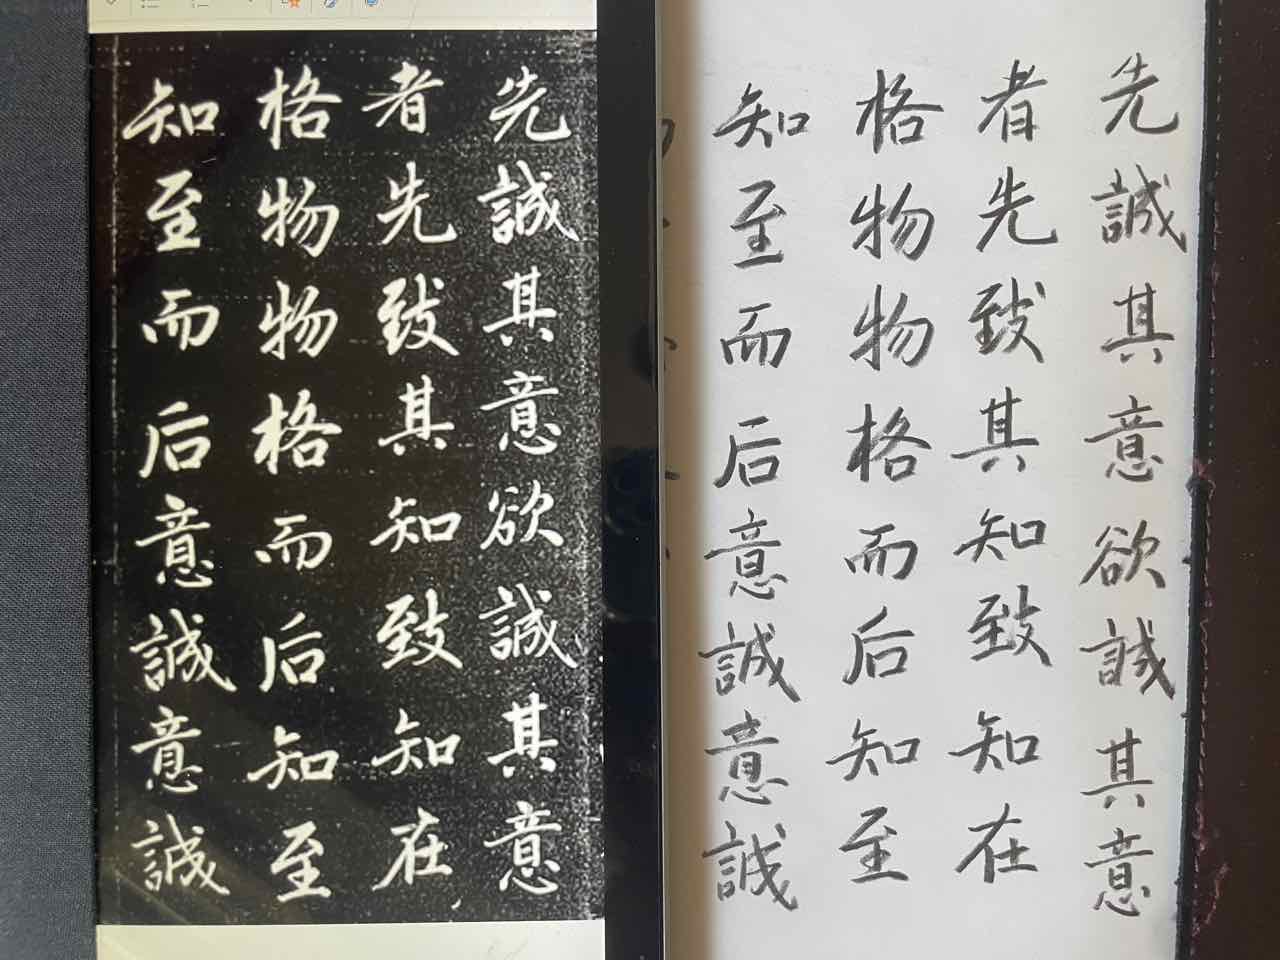 先誠其意欲誠其意
者先致其知致知在
格物物格而后知至
知至而后意誠意誠
先誠其意欲誠其意
者先致其知致知在
格物物格而后知至
知至而后意誠意誠